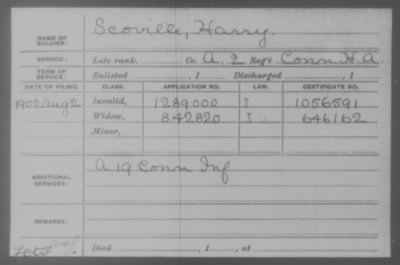 NAME OF SOLDIER: Scoville, Harry.
SERVICE: Late rank, Co. A, 2 Reg't Conn H.A.
TERM OF SERVICE: Enlisted , 1 Discharged , 1
DATE OF FILING. CLASS. APPLICATION NO. LAW. CERTIFICATE NO.
1902 Aug 2 Invalid, 1289000 I 1056591
Widow, 842820 I 646162
Minor,
ADDITIONAL SERVICES: A 19 Conn Inf
REMARKS:
Died , 1 , at